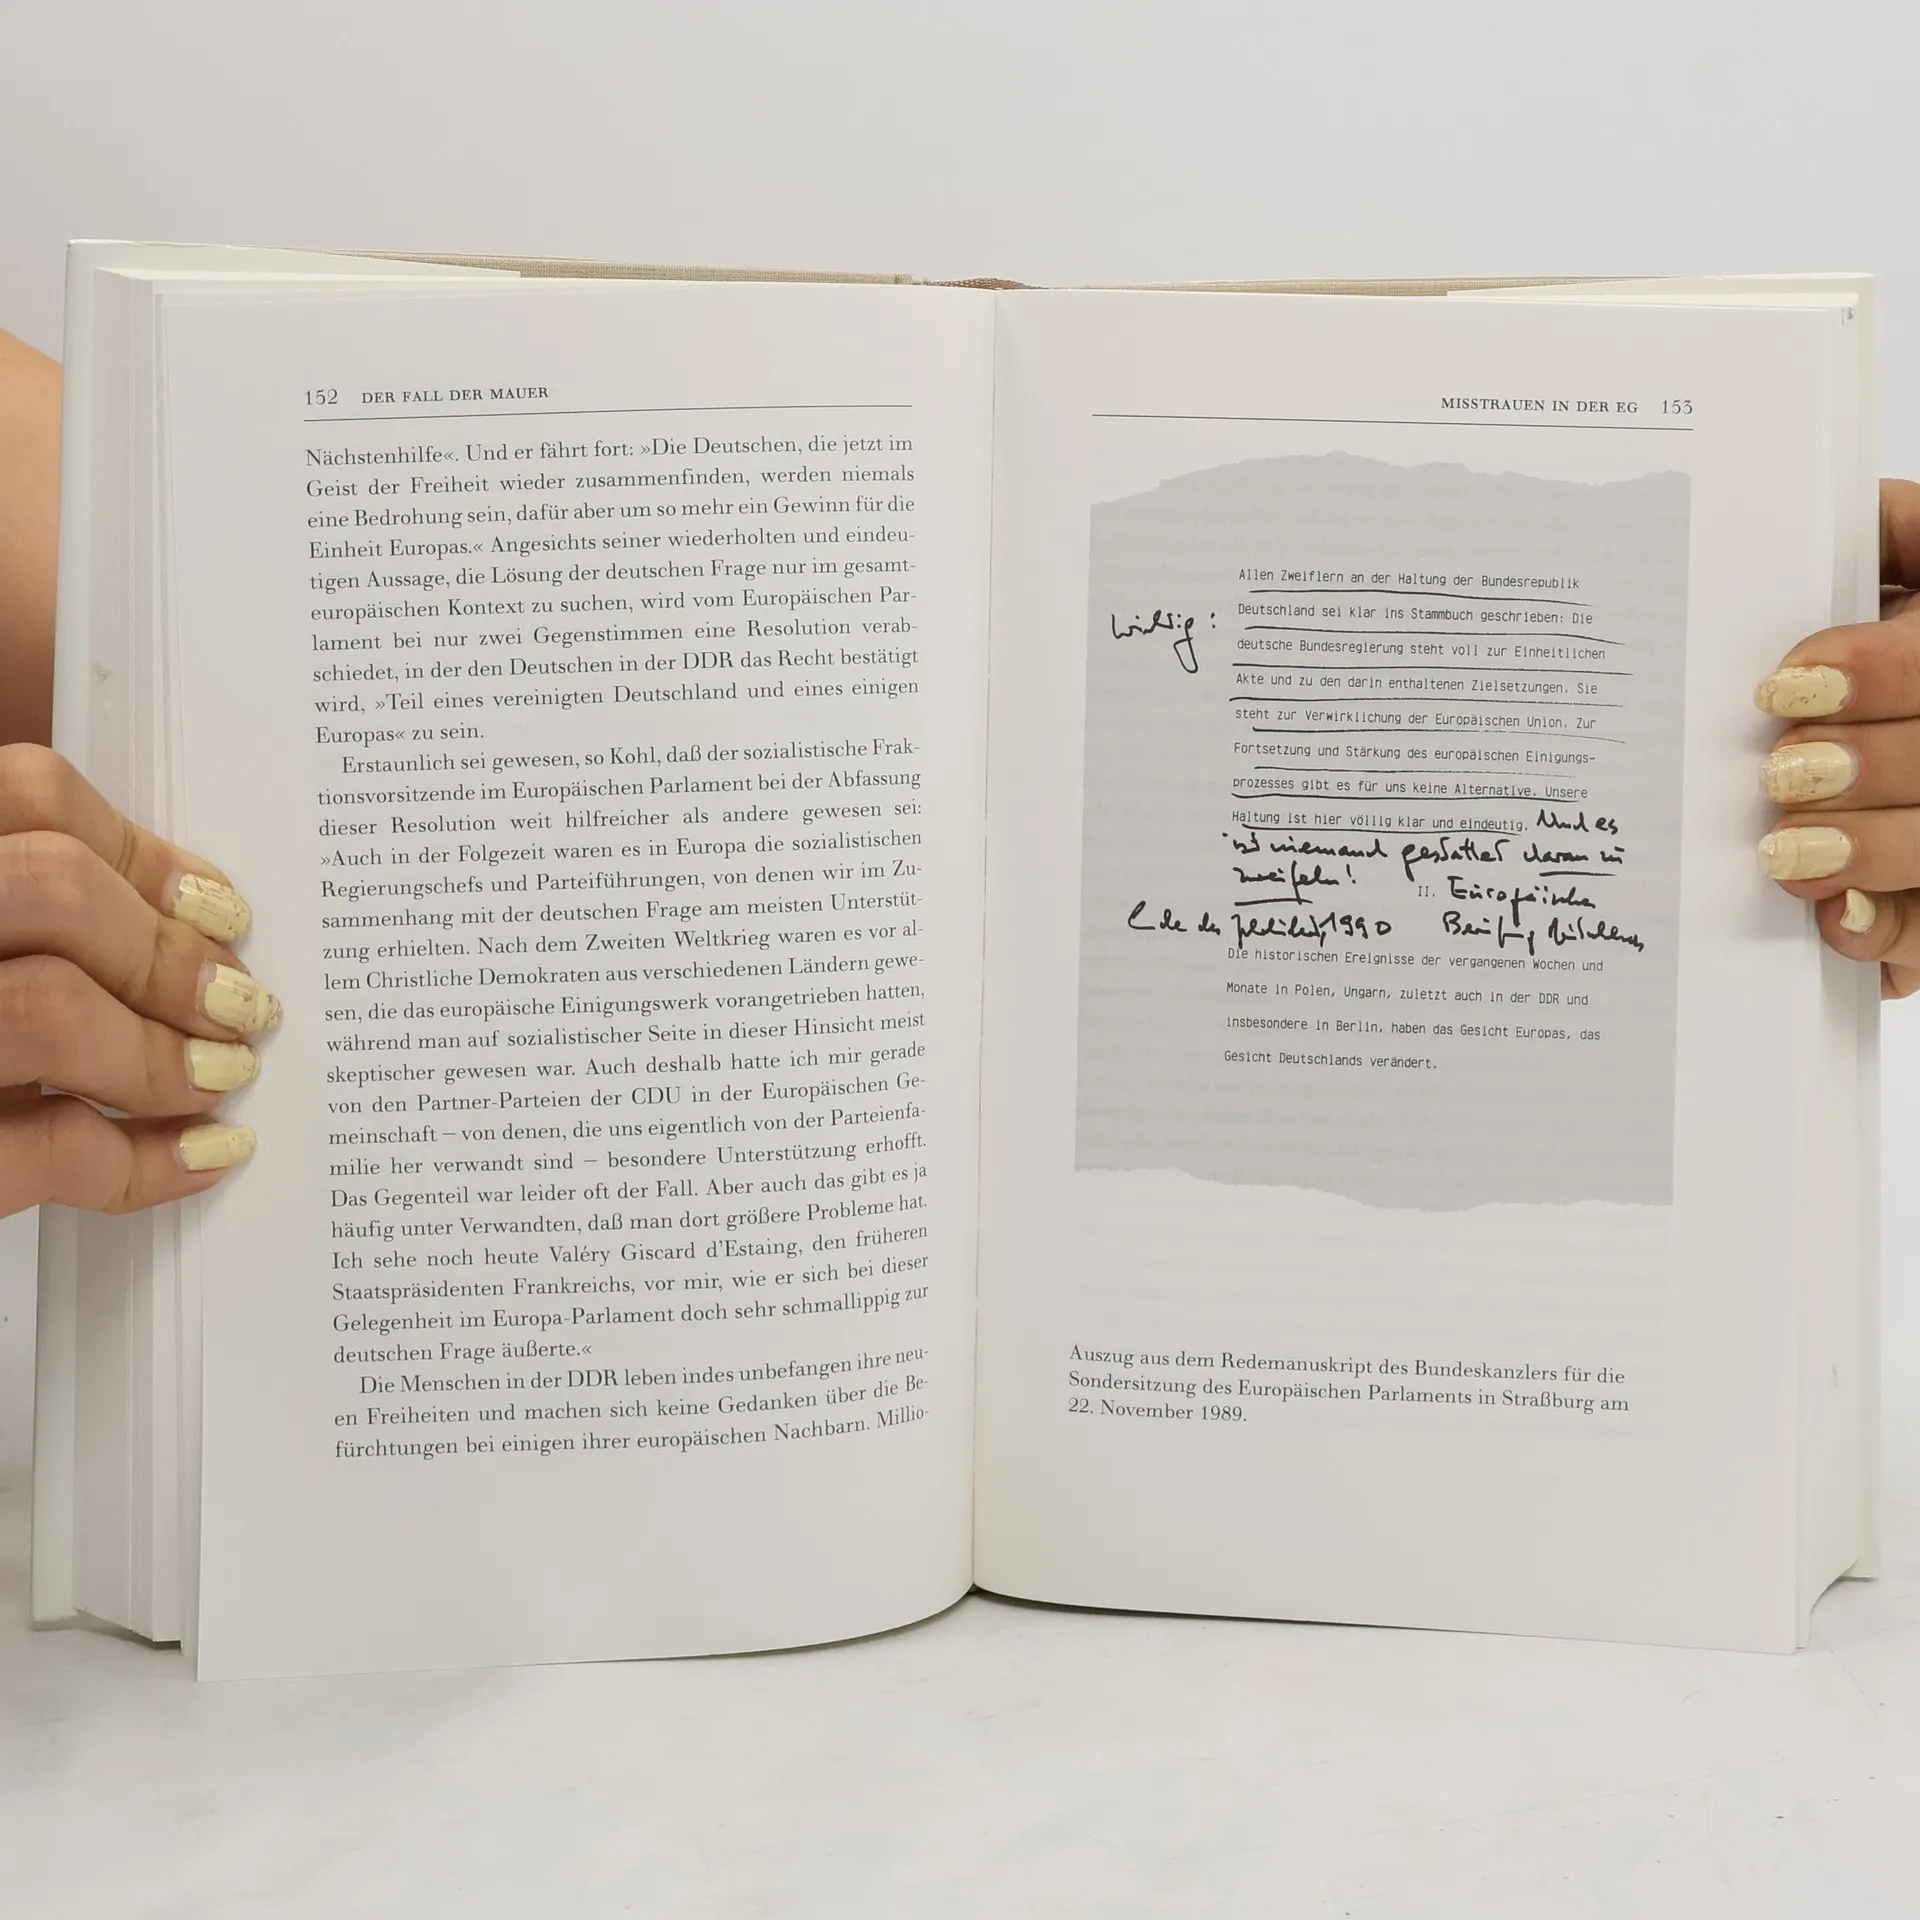 152 DER FALL DER MAUER
Nächstenhilfe«. Und er fährt fort: »Die Deutschen, die jetzt im
Geist der Freiheit wieder zusammenfinden, werden niemals
eine Bedrohung sein, dafür aber um so mehr ein Gewinn für die
Einheit Europas.« Angesichts seiner wiederholten und eindeu-
tigen Aussage, die Lösung der deutschen Frage nur im gesamt-
europäischen Kontext zu suchen, wird vom Europäischen Par-
lament bei nur zwei Gegenstimmen eine Resolution verab-
schiedet, in der den Deutschen in der DDR das Recht bestätigt
wird, »Teil eines vereinigten Deutschland und eines einigen
Europas« zu sein.
Erstaunlich sei gewesen, so Kohl, daß der sozialistische Frak-
tionsvorsitzende im Europäischen Parlament bei der Abfassung
dieser Resolution weit hilfreicher als andere gewesen sei:
»Auch in der Folgezeit waren es in Europa die sozialistischen
Regierungschefs und Parteiführungen, von denen wir im Zu-
sammenhang mit der deutschen Frage am meisten Unterstüt-
zung erhielten. Nach dem Zweiten Weltkrieg waren es vor al-
lem Christliche Demokraten aus verschiedenen Ländern gewe-
sen, die das europäische Einigungswerk vorangetrieben hatten,
während man auf sozialistischer Seite in dieser Hinsicht meist
skeptischer gewesen war. Auch deshalb hatte ich mir gerade
von den Partner-Parteien der CDU in der Europäischen Ge-
meinschaft – von denen, die uns eigentlich von der Parteienfa-
milie her verwandt sind – besondere Unterstützung erhofft.
Das Gegenteil war leider oft der Fall. Aber auch das gibt es ja
häufig unter Verwandten, daß man dort größere Probleme hat.
Ich sehe noch heute Valéry Giscard d'Estaing, den früheren
Staatspräsidenten Frankreichs, vor mir, wie er sich bei dieser
Gelegenheit im Europa-Parlament doch sehr schmallippig zur
deutschen Frage äußerte.«
Die Menschen in der DDR leben indes unbefangen ihre neu-
en Freiheiten und machen sich keine Gedanken über die Be-
fürchtungen bei einigen ihrer europäischen Nachbarn. Millio-
MISSTRAUEN IN DER EG 153
Allen Zweiflern an der Haltung der Bundesrepublik
wichtig: Deutschland sei klar ins Stammbuch geschrieben: Die
deutsche Bundesregierung steht voll zur Einheitlichen
Akte und zu den darin enthaltenen Zielsetzungen. Sie
steht zur Verwirklichung der Europäischen Union. Zur
Fortsetzung und Stärkung des europäischen Einigungs-
prozesses gibt es für uns keine Alternative. Unsere
Haltung ist hier völlig klar und eindeutig. Und es
ist niemand gestattet daran zu
zweifeln! II. Europäische
1990
Die historischen Ereignisse der vergangenen Wochen und
Monate in Polen, Ungarn, zuletzt auch in der DDR und
insbesondere in Berlin, haben das Gesicht Europas, das
Gesicht Deutschlands verändert.
Auszug aus dem Redemanuskript des Bundeskanzlers für die
Sondersitzung des Europäischen Parlaments in Straßburg am
22. November 1989.